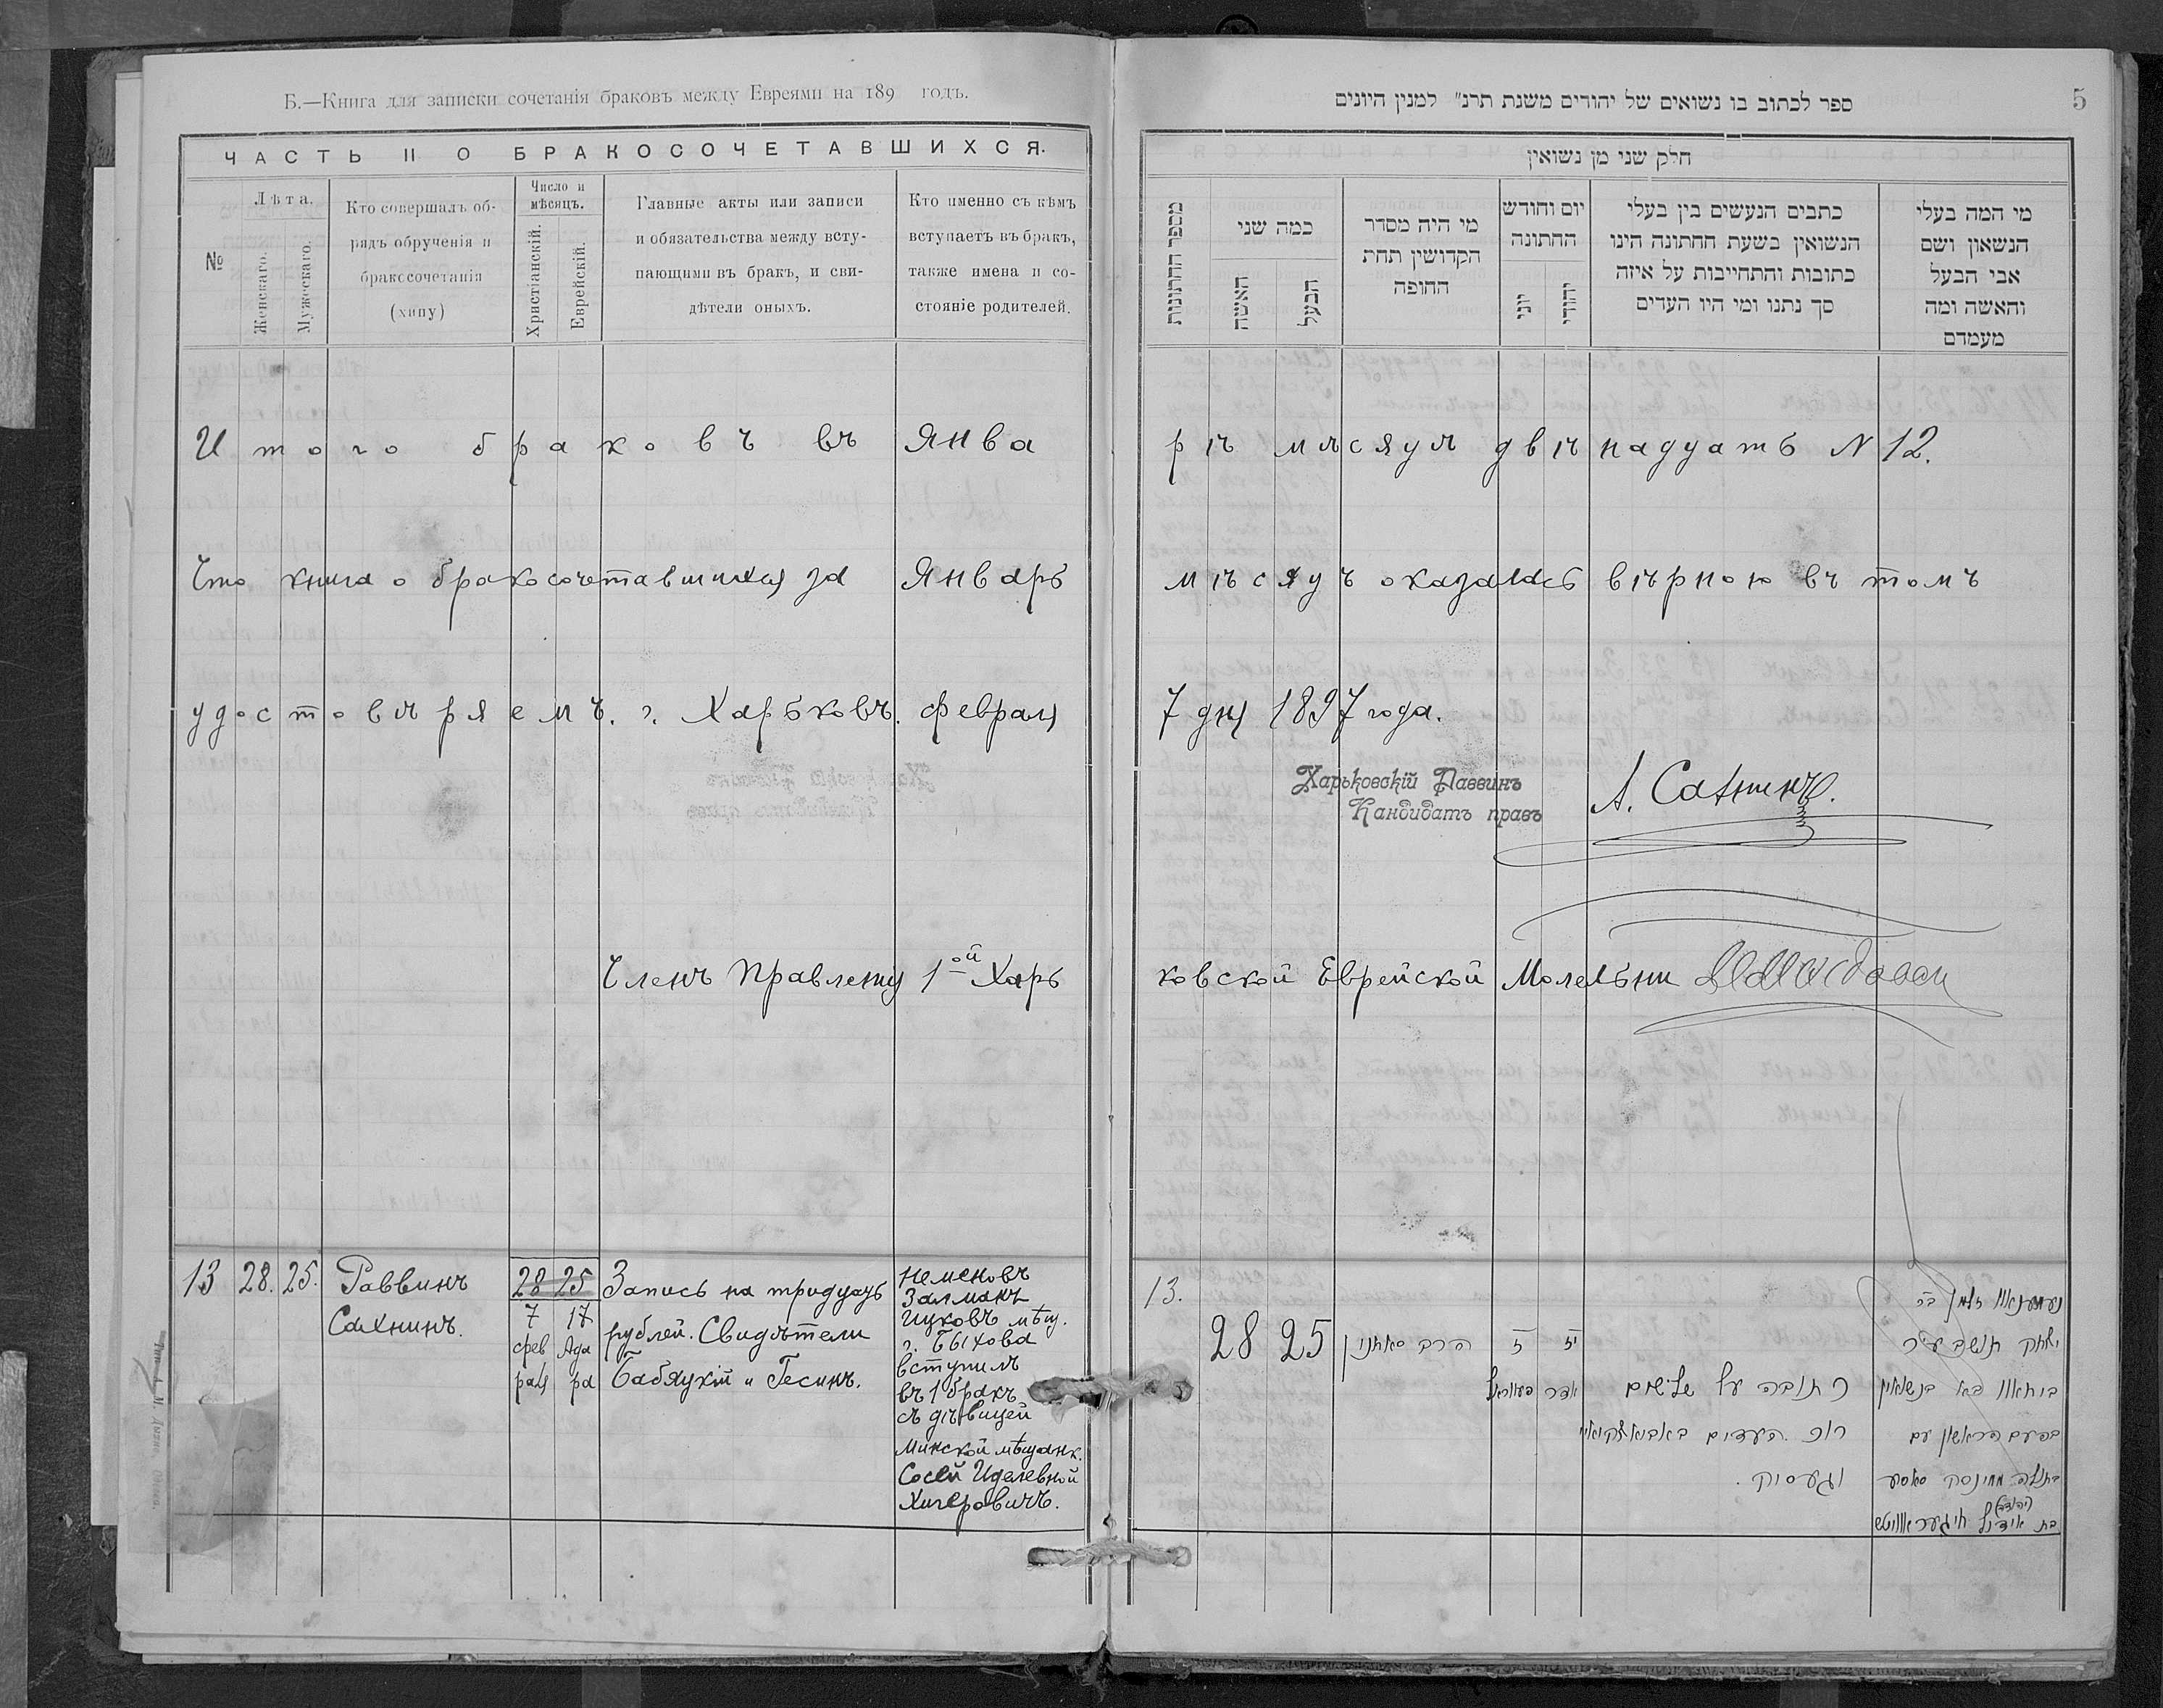 Б.—Книга для записки сочетанія браковъ между Евреями на 189 годъ.
ЧАСТЬ II О БРАКОСОЧЕТАВШИХСЯ.
№
Лѣта.
Женскаго.
Мужескаго.
Кто совершалъ об-
рядъ обрученія и
бракосочетанія
(хипу)
Число и
мѣсяцъ.
Христіанскій.
Еврейскій.
Главные акты или записи
и обязательства между всту-
пающими въ бракъ, и сви-
дѣтели оныхъ.
Кто именно съ кѣмъ
вступаетъ въ бракъ,
также имена и со-
стояніе родителей.
5
ספר לכתוב בו נשואים של יהודים משנת תרנ״ למנין היונים
חלק שני מן נשואין
מספר החתונות
כמה שני
האשה
הבעל
מי היה מסדר
הקדושין תחת
החופה
יום וחודש
החתונה
יוני
יהודי
כתבים הנעשים בין בעלי
הנשואין בשעת החתונה הינו
כתובות והתחייבות על איזה
סך נתנו ומי היו העדים
מי המה בעלי
הנשאון ושם
אבי הבעל
והאשה ומה
מעמדם
Итого браковъ въ Январѣ мѣсяцѣ двѣнадцать N 12.
Что книга о бракосочетавшихся за Январь мѣсяцъ оказалась вѣрною въ томъ
удостовѣряемъ. г. Харьковъ. Февраля 7 дня 1897 года.
Харьковскій Раввинъ
Кандидатъ правъ
А. Сахнинъ.
Членъ Правленія 1ой Харьковской Еврейской Молельни
13 28. 25.
Раввинъ
Сахнинъ.
28 25
7 17
фев Ада
раля ра
Запись на тридцать
рублей. Свидѣтели
Бабяцкій и Гесинъ.
Неменовъ
Залманъ
Ицковъ мѣщ.
г. Быхова
вступилъ
въ 1 бракъ
съ дѣвицей
Минской мѣщанк.
Сосей Иделевной
Хигеровичъ.
13.
28 25
הרב סאחנין
ז
יז
אדר
כתובה על שלשים
רוב. העדים
וגעסין.
זלמן בר
יצחק תושב עיר
בא בנשואין
בפעם הראשון עם
בתולה ממינסק סאסע
(יהודה)
בת אידל